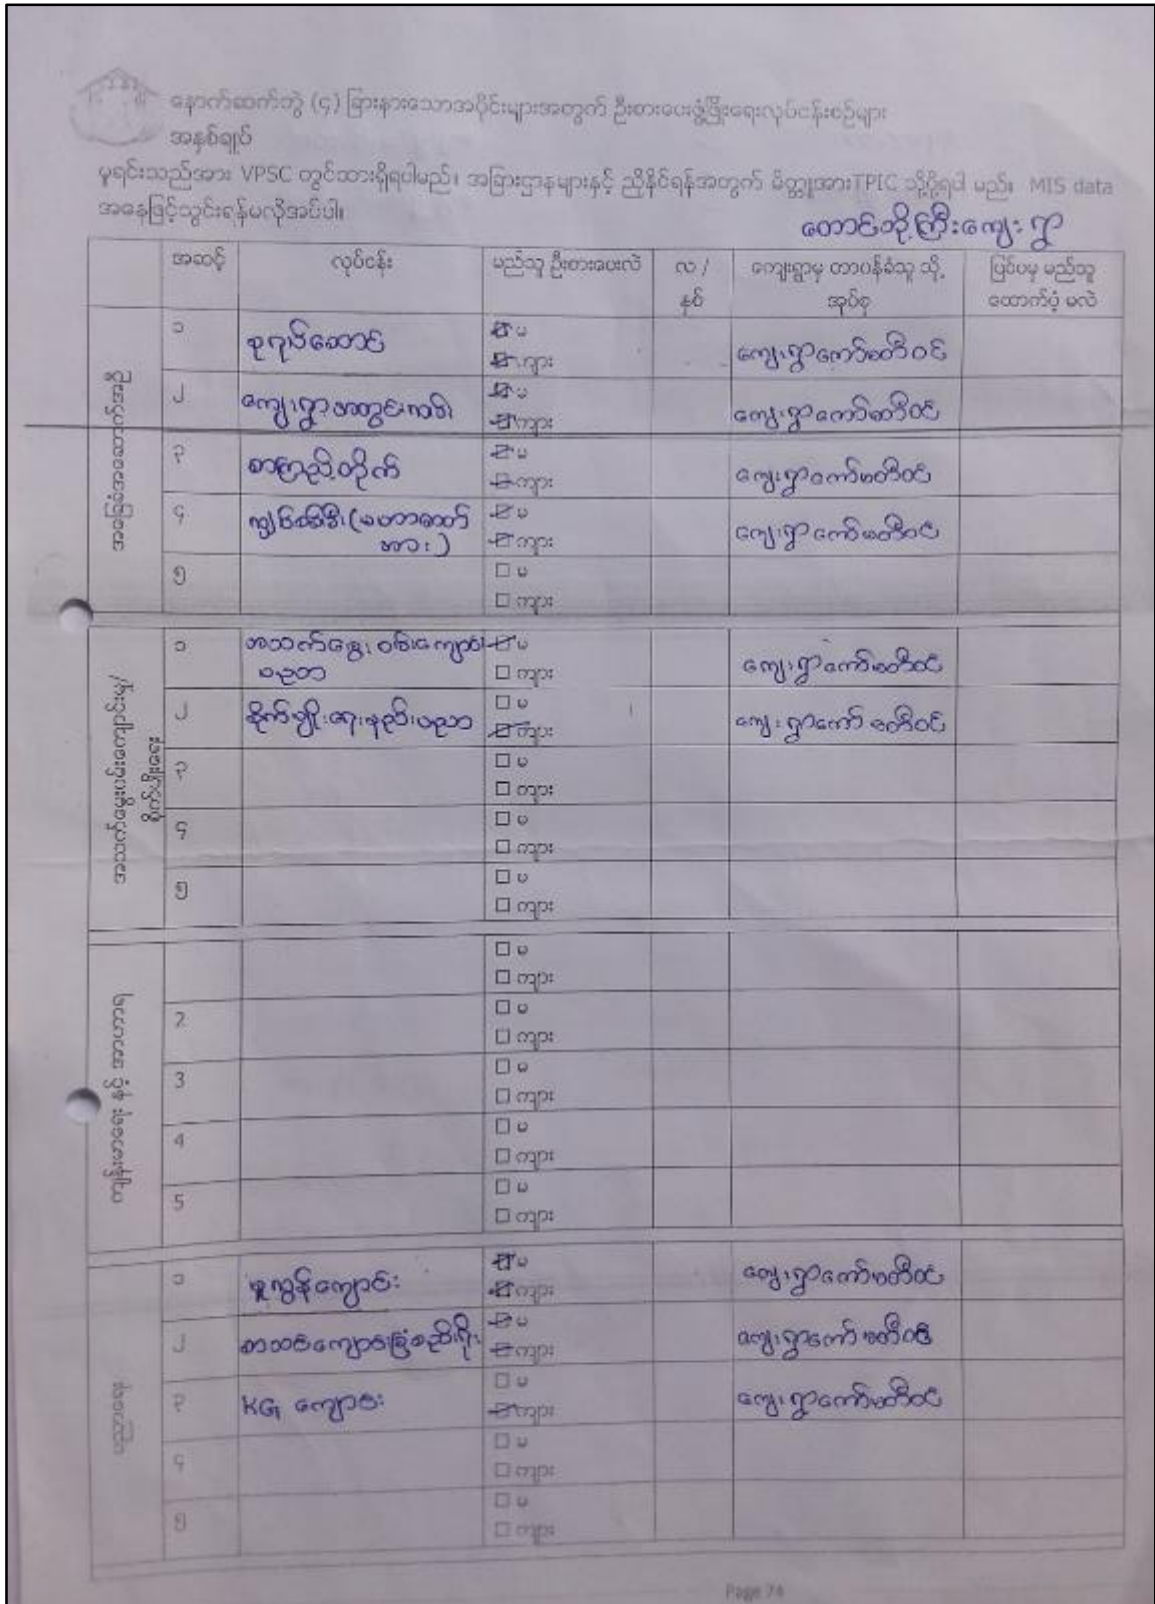 နောက်ဆက်တွဲ (၄) ခြားနားသောအပိုင်းများအတွက် ဦးစားပေးဖွံ့ဖြိုးရေးလုပ်ငန်းစဉ်များ
အနှစ်ချုပ်
မူရင်းသည်အား VPSC တွင်ထားရှိရပါမည်၊ အခြားဌာနများနှင့် ညှိနှိုင်ရန်အတွက် မိတ္တူအားTPIC သို့ပို့ရပါ မည်။ MIS data
အနေဖြင့်သွင်းရန်မလိုအပ်ပါ။
တောင်ဘို့ကြီးကျေးရွာ
အဆင့် လုပ်ငန်း မည်သူ ဦးစားပေးလဲ လ / နှစ် ကျေးရွာမှ တာဝန်ခံသူ သို့ အုပ်စု ပြင်ပမှ မည်သူ ထောက်ပံ့ မလဲ
အခြေခံအဆောက်အဦ
၁ စုရပ်ဆောင် မ ကျေးရွာကော်မတီဝင်
ကျား
၂ ကျေးရွာအတွင်းလမ်း မ ကျေးရွာကော်မတီဝင်
ကျား
၃ စာကြည့်တိုက် မ ကျေးရွာကော်မတီဝင်
ကျား
၄ မ ကျေးရွာကော်မတီဝင်
ကျား
၅ မ
ကျား
၁ အသက်မွေးဝမ်းကျောင်း မ ကျေးရွာကော်မတီဝင်
ပညာ ကျား
၂ စိုက်ပျိုးရေးနည်းပညာ မ ကျေးရွာကော်မတီဝင်
ကျား
၃ မ
ကျား
၄ မ
ကျား
၅ မ
ကျား
မ
ကျား
2 မ
ကျား
3 မ
ကျား
4 မ
ကျား
5 မ
ကျား
၁ မူလွန်ကျောင်း မ ကျေးရွာကော်မတီဝင်
ကျား
၂ စာသင်ကျောင်းခြံစည်းရိုး မ ကျေးရွာကော်မတီဝင်
ကျား
၃ KG ကျောင်း မ ကျေးရွာကော်မတီဝင်
ကျား
၄ မ
ကျား
၅ မ
ကျား
Page 74